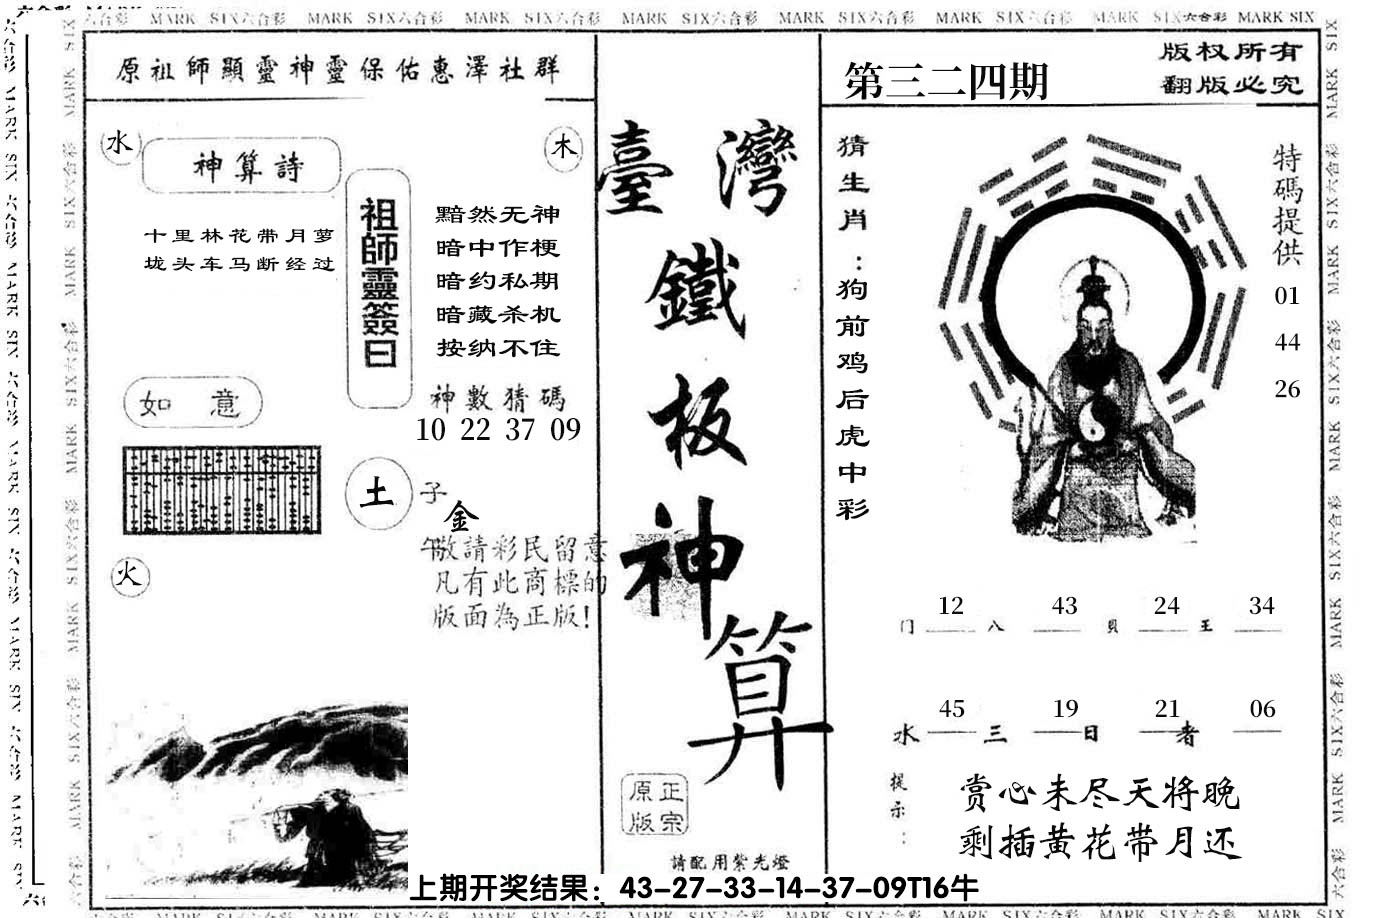 MARK SIX六合彩 MARK SIX六合彩 MARK SIX六合彩 MARK SIX六合彩 MARK SIX六合彩 MARK SIX六合彩 MARK SIX六合彩 MARK SIX
原祖師顯靈神靈保佑惠澤社群
水
神算詩
木
十里林花带月萝
垅头车马断经过
祖師靈簽曰
黯然无神
暗中作梗
暗约私期
暗藏杀机
按纳不住
神數猜碼
10 22 37 09
如 意
土
子
金
午
敬請彩民留意
凡有此商標的
版面為正版!
火
臺灣
鐵
板
神
算
正宗
原版
請配用紫光燈
第三二四期
版权所有
翻版必究
猜生肖:狗前鸡后虎中彩
特碼提供
01
44
26
12 43 24 34
门 八 貝 王
45 19 21 06
水 三 日 者
提示:
赏心未尽天将晚
剩插黄花带月还
上期开奖结果：43-27-33-14-37-09T16牛